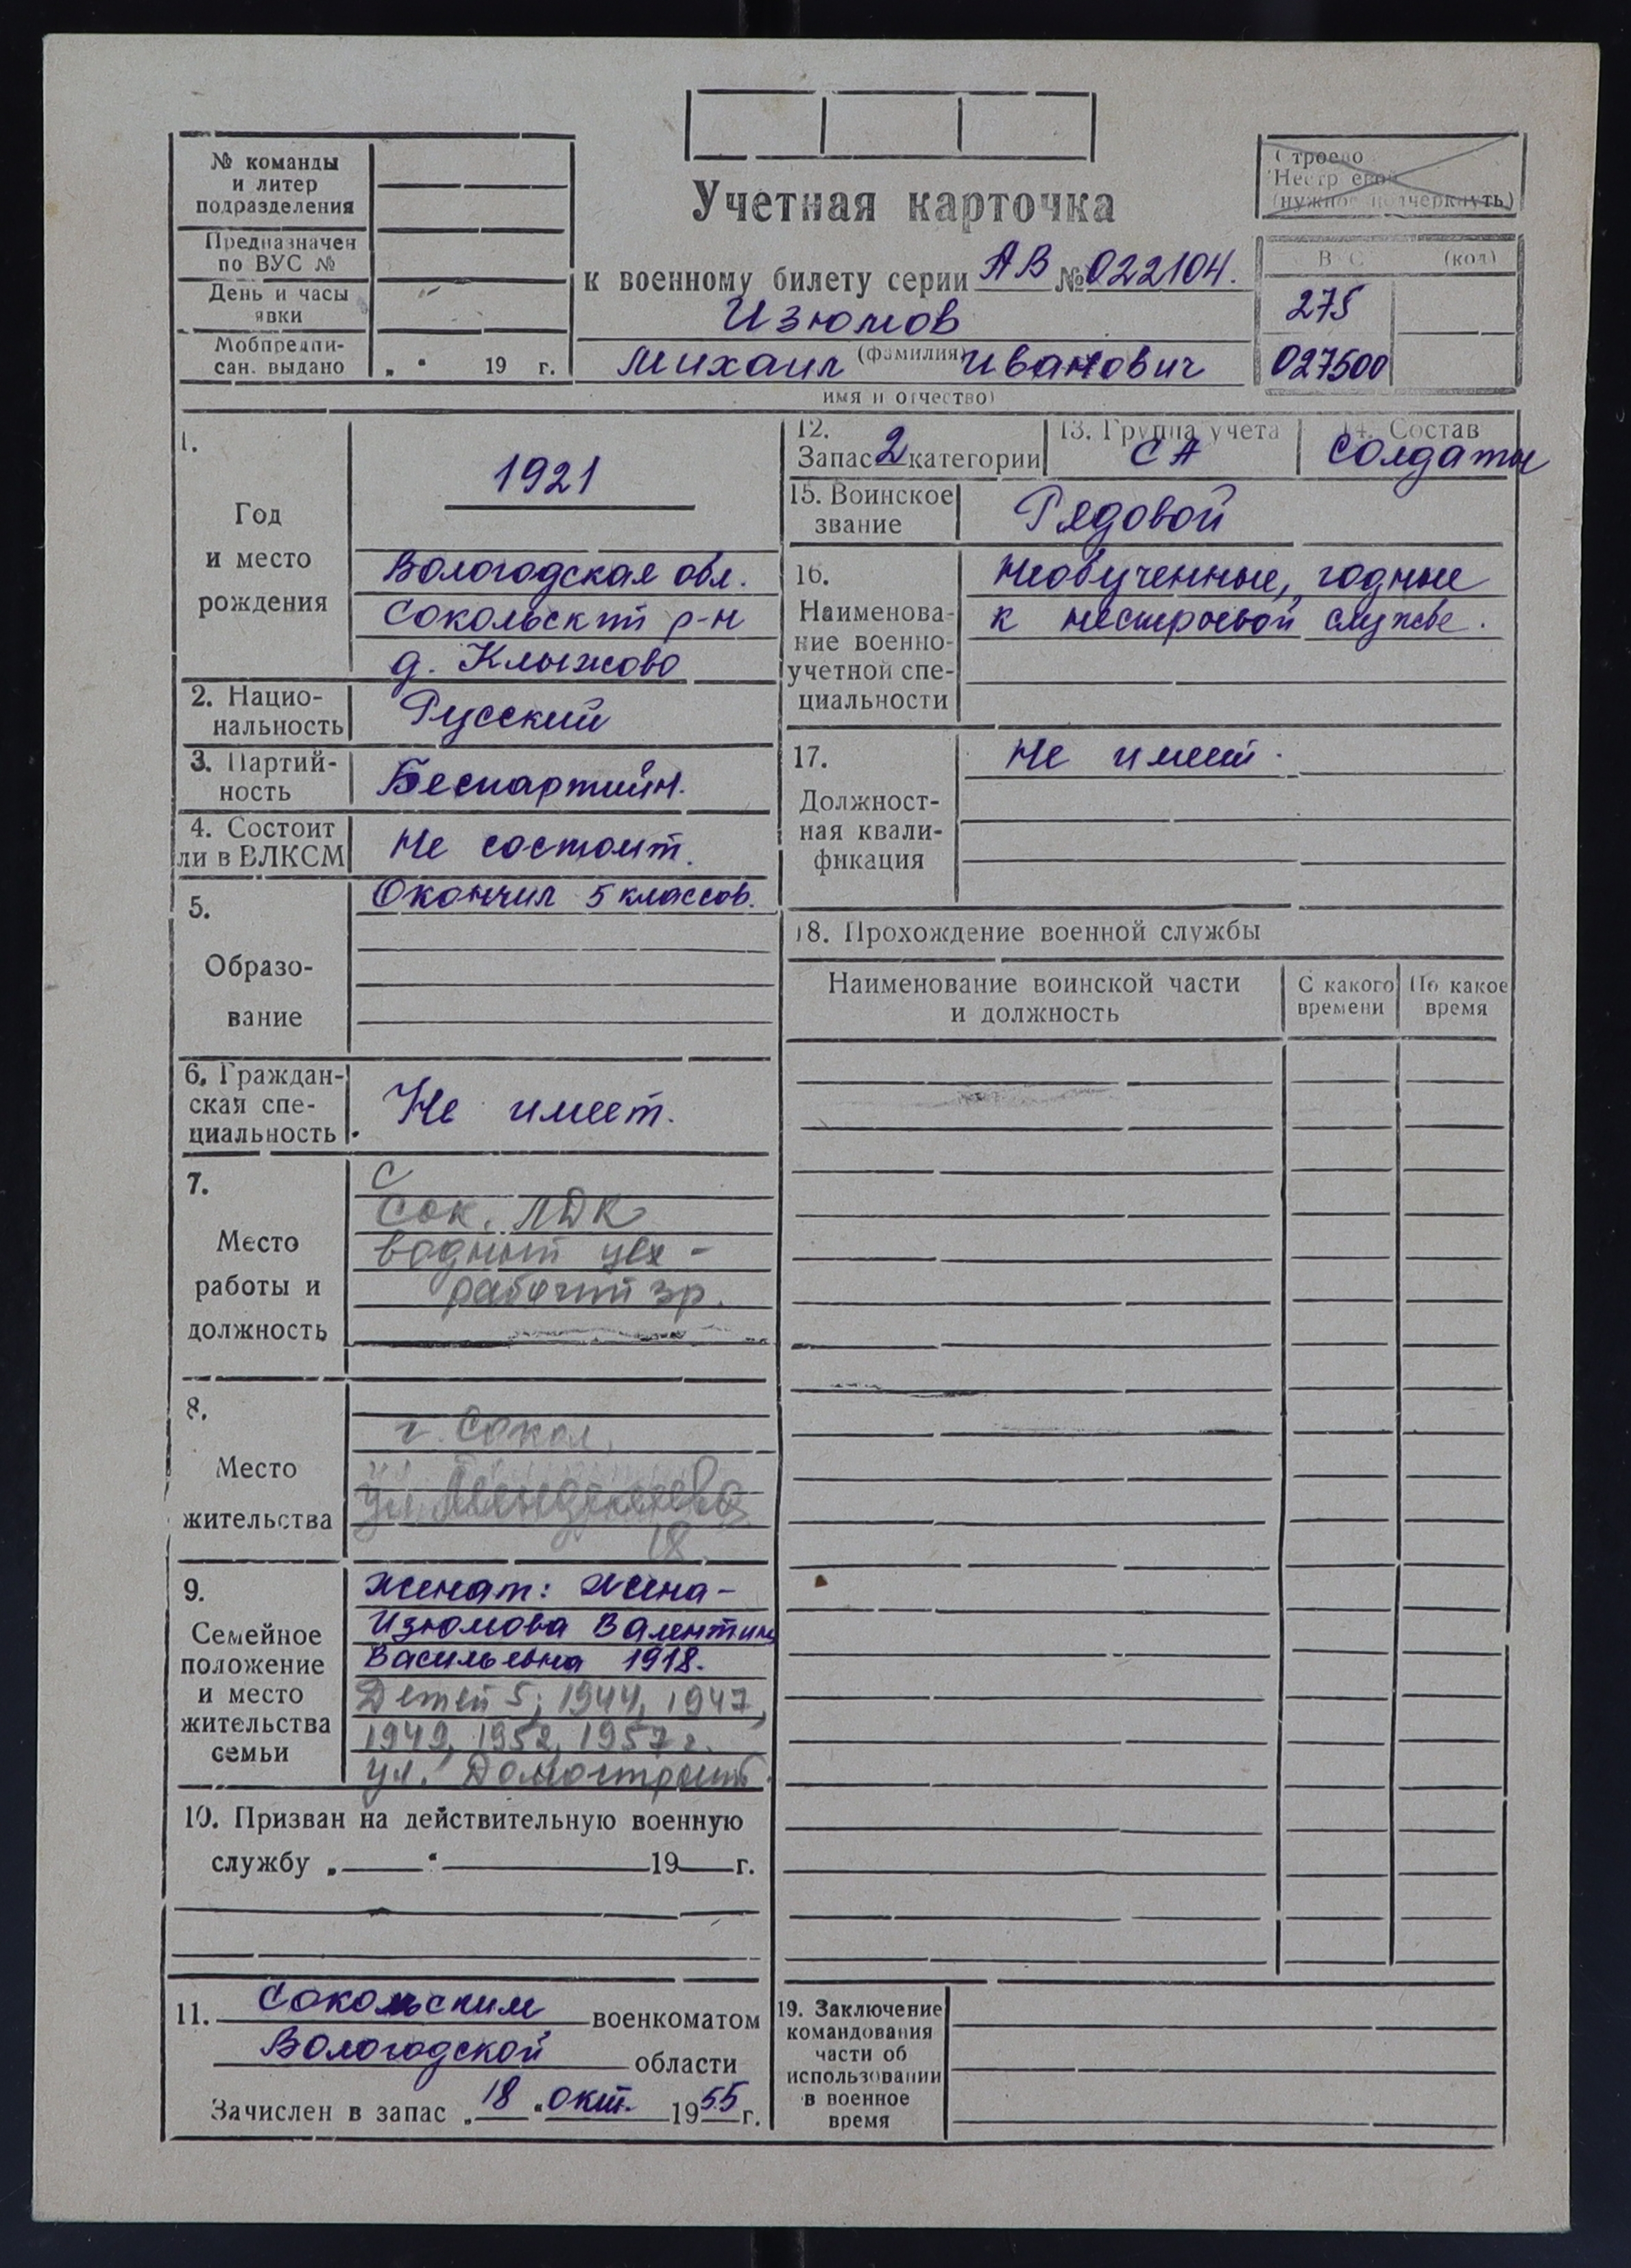 № команды
и литер
подразделения
Предназначен
по ВУС №
День и часы
явки
Мобпредпи-
сан. выдано
„ “ 19 г.
Учетная карточка
к военному билету серии АВ № 022104.
Изюмов
(фамилия)
Михаил Иванович
имя и отчество)
Строево
Нестр евой
(нужное подчеркнуть)
В С (код)
275
027500
1.
Год
и место
рождения
1921
Вологодская обл.
Сокольский р-н
д. Клыжово
2. Нацио-
нальность
Русский
3. Партий-
ность
Беспартийн.
4. Состоит
ли в ВЛКСМ
Не состоит.
5.
Образо-
вание
Окончил 5 классов.
6. Граждан-
ская спе-
циальность
Не имеет.
7.
Место
работы и
должность
С
Сок. ЛДК
водный цех -
рабочий зр.
8.
Место
жительства
г. Сокол,
ул. Менделеева
18.
9.
Семейное
положение
и место
жительства
семьи
Женат: Жена -
Изюмова Валентина
Васильевна 1918.
Детей 5; 1944, 1947,
1949, 1952, 1957 г.
ул. Домостроит.
10. Призван на действительную военную
службу „ “ 19 г.
11. Сокольским военкоматом
Вологодской области
Зачислен в запас „ 18 “ окт. 1955 г.
12.
Запас 2 категории
13. Группа учета
СА
14. Состав
Солдаты
15. Воинское
звание
Рядовой
16.
Наименова-
ние военно-
учетной спе-
циальности
Необученные, годные
к нестроевой службе.
17.
Должност-
ная квали-
фикация
Не имеет.
18. Прохождение военной службы
Наименование воинской части
и должность
С какого
времени
По какое
время
19. Заключение
командования
части об
использовании
в военное
время